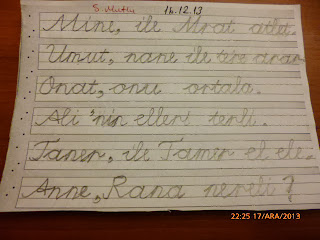 S. Mutlu 16.12.13
Mine, ile Mırat atlet.
Umut, nane ile tere aran
Onat, onu ortala.
Ali 'nin elleri terli.
Taner, ile Tamer el ele.
Anne, Rana nereli ?
22:25 17/ARA/2013